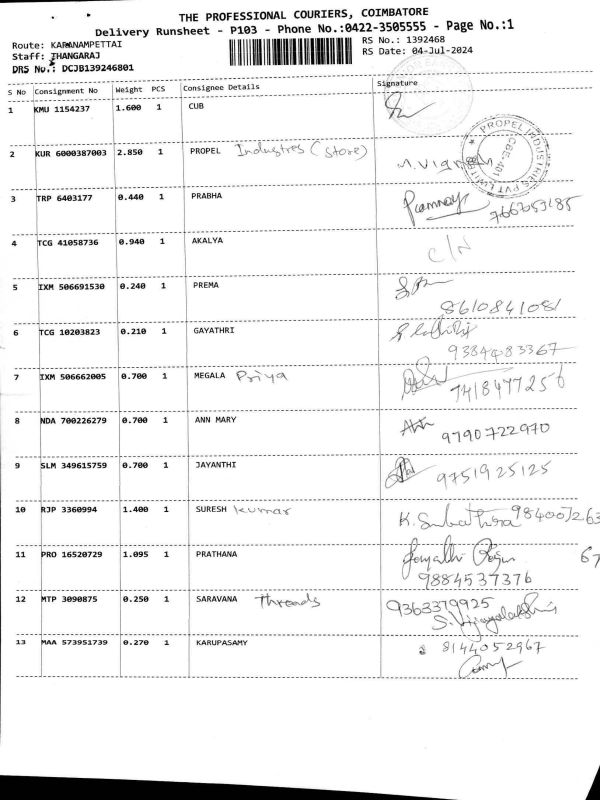 THE PROFESSIONAL COURIERS, COIMBATORE
Delivery Runsheet - P103 - Phone No.:0422-3505555 - Page No.:1
Route: KARANAMPETTAI
RS No.: 1392468
Staff: THANGARAJ
RS Date: 04-Jul-2024
DRS No.: DCJB139246801
S No Consignment No Weight PCS Consignee Details Signature
1 KMU 1154237 1.600 1 CUB
PROPEL INDUSTRIES PVT LIMITED
CBE-401
2 KUR 6000387003 2.850 1 PROPEL Industres (Store) M. Vignesh
3 TRP 6403177 0.440 1 PRABHA
4 TCG 41058736 0.940 1 AKALYA C/N
5 IXM 506691530 0.240 1 PREMA
8610841081
6 TCG 10203823 0.210 1 GAYATHRI
9384483367
7 IXM 506662005 0.700 1 MEGALA Priya 7418477256
8 NDA 700226279 0.700 1 ANN MARY 9790722970
9 SLM 349615759 0.700 1 JAYANTHI 9751925125
10 RJP 3360994 1.400 1 SURESH kumar K. 984007263
67
11 PRO 16520729 1.095 1 PRATHANA
9884537376
12 MTP 3090875 0.250 1 SARAVANA Threads 9363379925
13 MAA 573951739 0.270 1 KARUPASAMY 8144052967